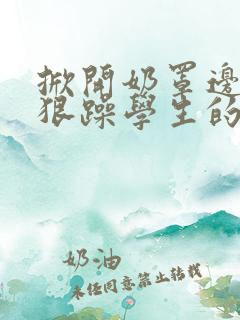 掀開奶罩邊
狠躁學生的
奶油
未经同意禁止转载